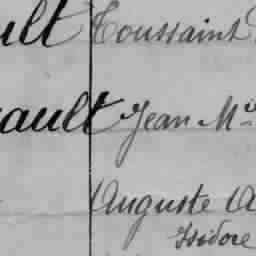 ult Toussaint
ault Jean Mie
Auguste A
Isidore